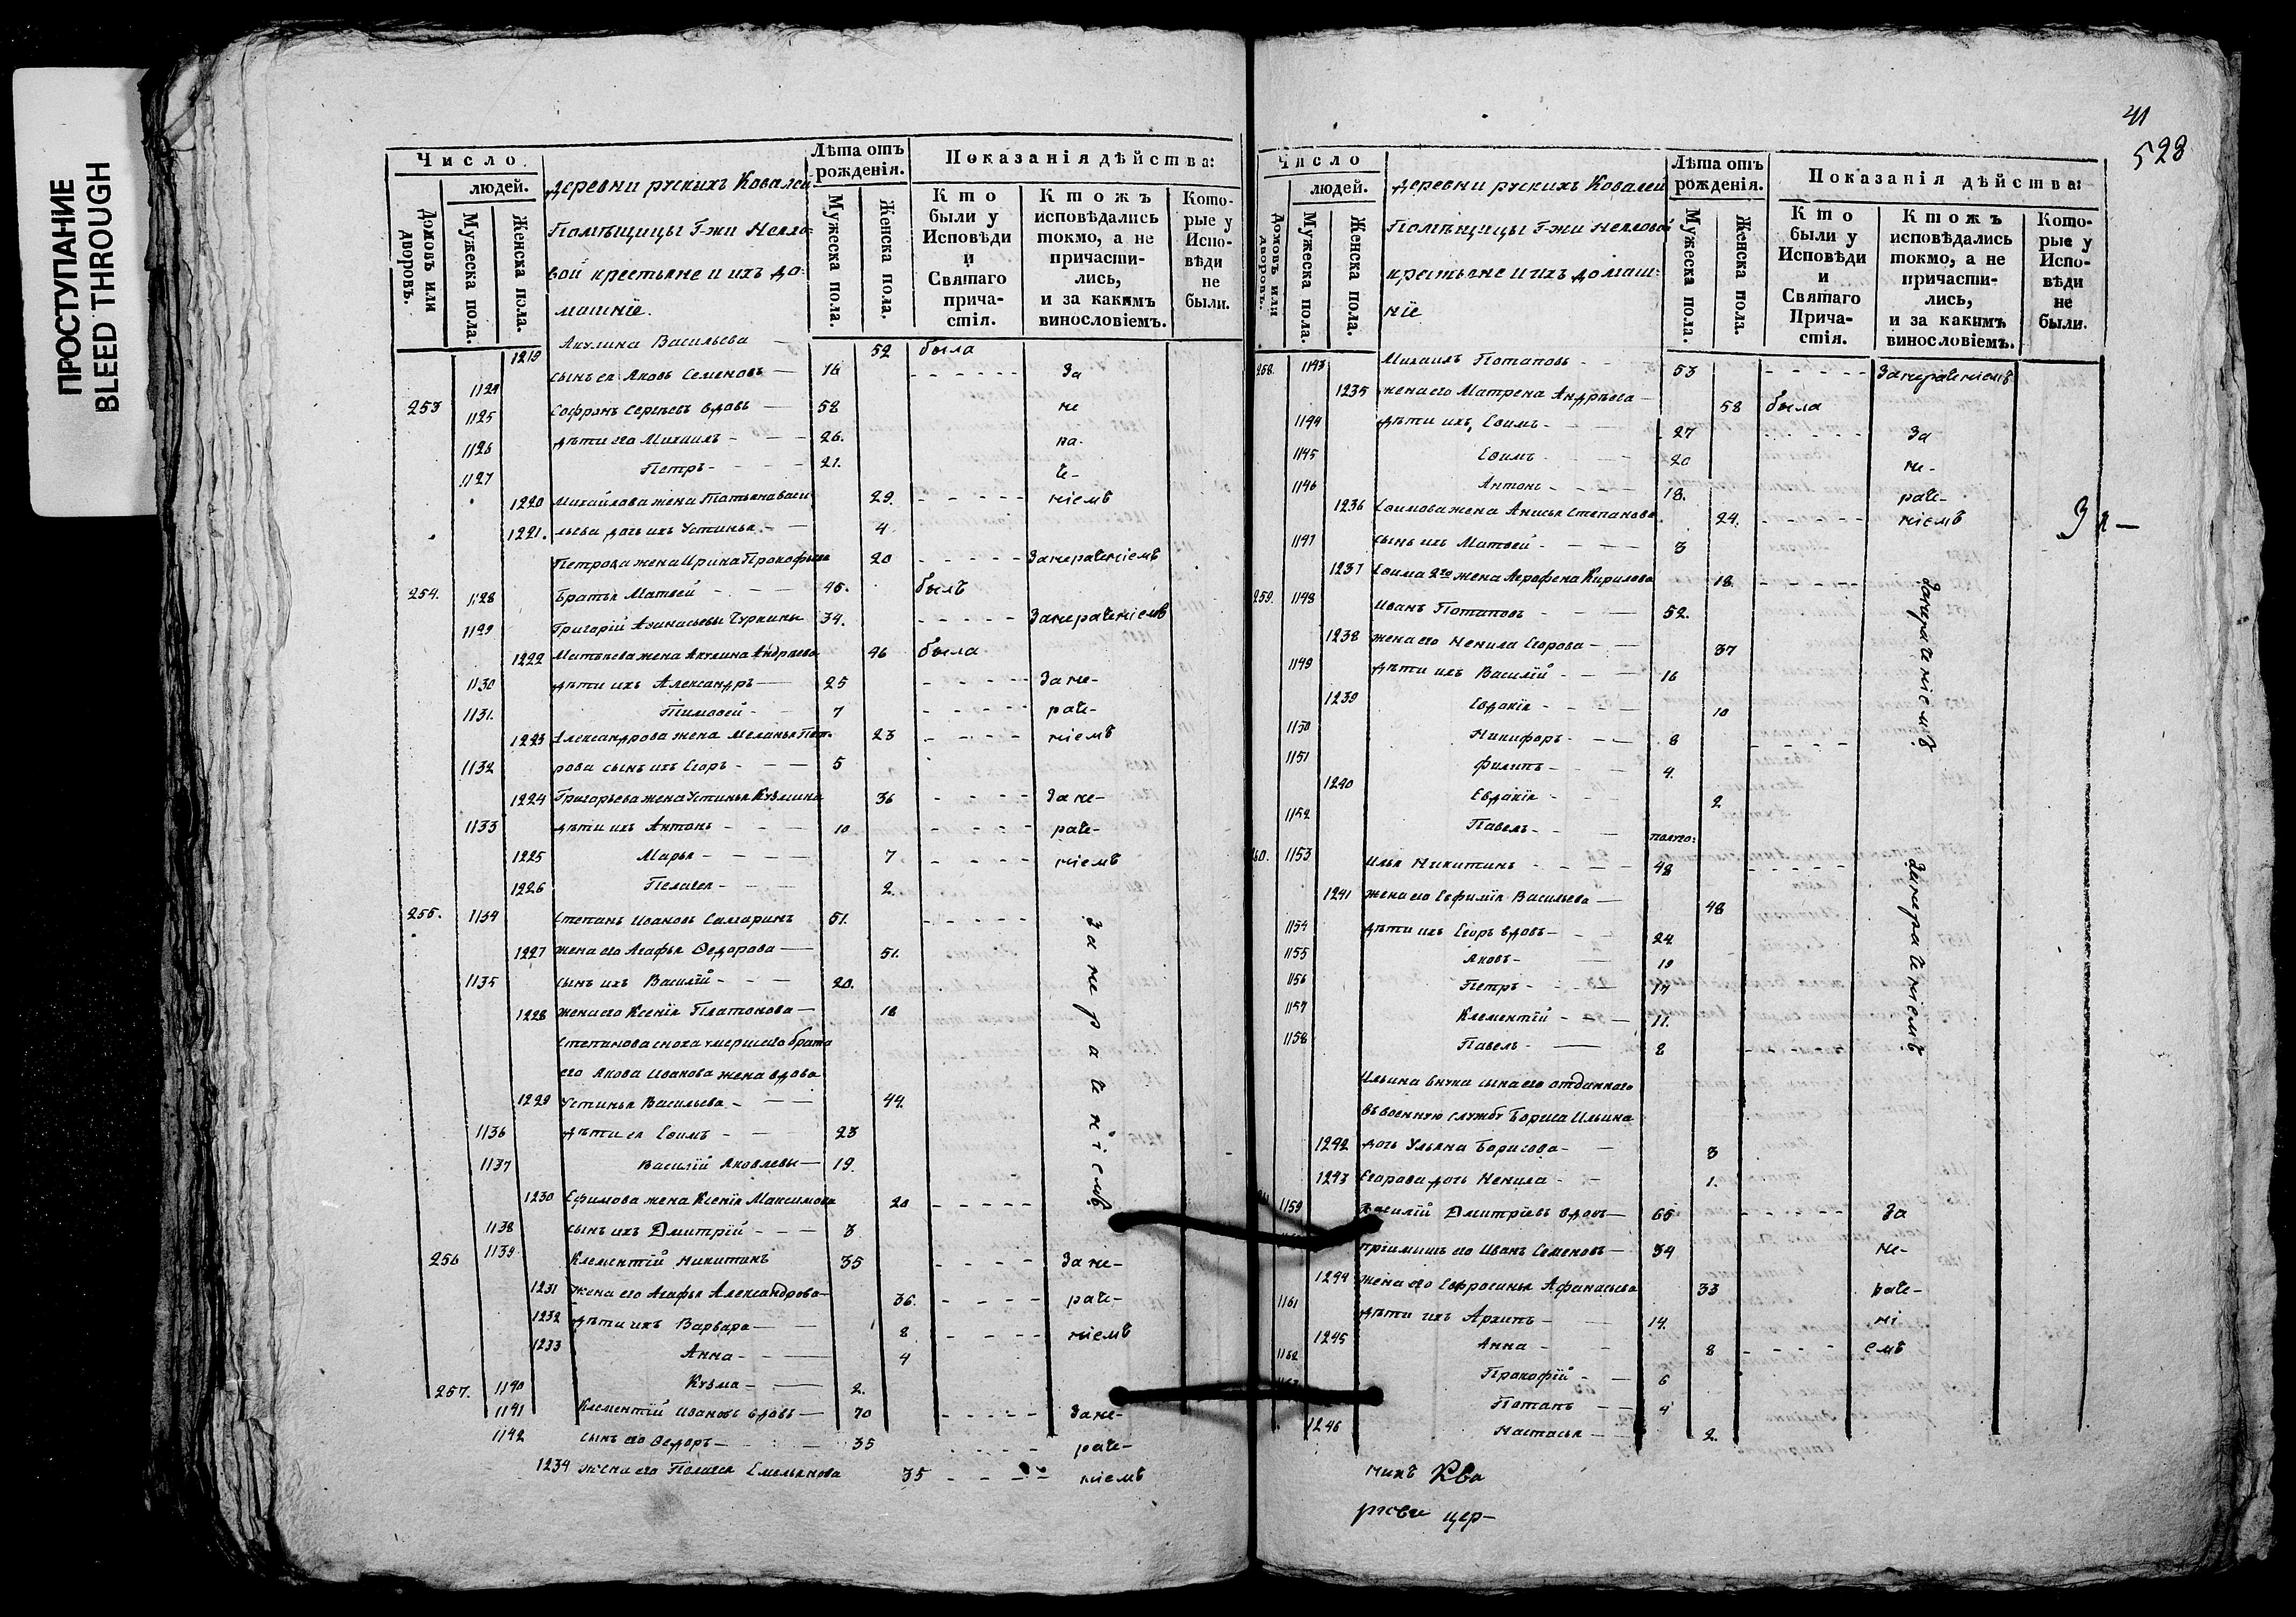 ПРОСТУПАНИЕ
BLEED THROUGH
Число
людей.
Домовъ или дворовъ.
Мужеска пола.
Женска пола.
деревни рускихъ Ковалей
Помѣщицы Г-жи Нелло-
вой крестьяне и ихъ до-
машніе.
Лѣта отъ рожденія.
Мужеска пола.
Женска пола.
Показанія дѣйства:
Кто были у Исповѣди и Святаго причастія.
Ктожъ исповѣдались токмо, а не причастились, и за какимъ винословіемъ.
Которые у Исповѣди не были.
1219 Акулина Васильева — 52 была
1124 сынъ ея Яковъ Семеновъ — 16 За
253 1125 Софронъ Сергѣевъ вдовъ — 58 не
1126 дѣти его Михаилъ — 26. ра-
1127 Петръ — 21. че-
1220 Михайлова жена Татьяна Васи- 29. ніемъ
1221. льева дочь ихъ Устинья — 4
Петрова жена Ирина Прокофьева 20 Занераченіемъ
254. 1128 Братья Матвей — 45. былъ
1129 Григорій Аѳанасьевы Чуркины 34. Занераченіемъ
1222 Матвѣева жена Акулина Андреева 46 была
1130 дѣти ихъ Александръ — 25 Зане-
1131. Тимоѳей — 7 раче-
1223 Александрова жена Меланья Пет- 23 ніемъ
1132 рова сынъ ихъ Егоръ — 5
1224 Григорьева жена Устинья Кузмина 36 Зане-
1133 дѣти ихъ Антонъ — 10 раче-
1225 Марья — 7 ніемъ
1226 Пелагея — 2.
255. 1134 Степанъ Ивановъ Самаринъ 51.
1227 жена его Агафья Ѳедорова — 51.
1135 сынъ ихъ Василій — 20.
1228 жена его Ксенія Платонова — 18
Степанова сноха умершаго брата
его Якова Иванова жена вдова
1229 Устинья Васильева — 44.
1136 дѣти ея Еѳимъ — 23
1137 Василій Яковлевы — 19.
1230 Ефимова жена Ксенія Максимова 20
1138 сынъ ихъ Дмитрій — 3
Занераченіемъ
256 1139 Клементій Никитинъ 35 Зане-
1231 жена его Агафья Александрова — 36. раче-
1232 дѣти ихъ Варвара — 8 ніемъ
1233 Анна — 4
1140 Кузма — 2.
257. 1141 Клементій Ивановъ вдовъ — 70 Зане-
1142 сынъ его Ѳедоръ — 35 раче-
1234 жена его Пелагея Емельянова 35 ніемъ
41
528
Число
людей.
Домовъ или дворовъ.
Мужеска пола.
Женска пола.
деревни рускихъ Ковалей
Помѣщицы Г-жи Нелловой
крестьяне и ихъ домаш-
ніе
Лѣта отъ рожденія.
Мужеска пола.
Женска пола.
Показанія дѣйства:
Кто были у Исповѣди и Святаго Причастія.
Ктожъ исповѣдались токмо, а не причастились, и за какимъ винословіемъ.
Которые у Исповѣди не были.
258. 1143 Михаилъ Потаповъ — 53 Занераченіемъ
1235 жена его Матрена Андрѣева — 58 была
1144 дѣти ихъ, Еѳимъ — 27 За
1145 Еѳимъ — 20 не-
1146 Антонъ — 18. раче-
1236 Еѳимова жена Анисья Степанова 24. ніемъ
1147 сынъ ихъ Матвей — 3
1237 Еѳима 2го жена Аграфена Кирилова 18.
259. 1148 Иванъ Потаповъ — 52.
1238 жена его Ненила Егорова — 37
1149 дѣти ихъ Василій — 16
1239 Евдокія — 10
1150 Никифоръ — 8
1151 Филипъ — 4.
1240 Евдокія — 2
1152 Павелъ — полго:
Занераченіемъ
260. 1153 Илья Никитинъ — 48
1241 жена его Евфимія Васильева — 48
1154 дѣти ихъ Егоръ вдовъ — 24
1155 Яковъ — 19
1156 Петръ — 17
1157 Клементій — 11.
1158 Павелъ — 8
Ильина внука сына его отданного
въ военную службу Бориса Ильина
1242 дочь Ульяна Борисова — 3
1243 Егорова дочь Ненила — 1.
Занераченіемъ
1159 Василій Дмитріевъ вдовъ — 65 За
пріимышъ его Иванъ Семеновъ — 34 не-
1244 жена его Евфросинья Афанасьева 33 раче-
1161 дѣти ихъ Архипъ — 14. ні
1245 Анна — 8 емъ
1162 Прокофій — 6
Потапъ — 4
1246 Настасья — 2.